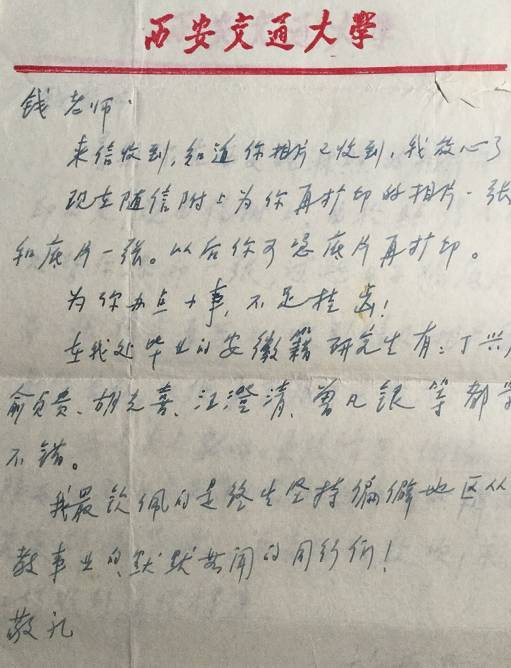 西安交通大学
钱老师:
来信收到,知道你相片已收到,我放心了
现在随信附上为你再扩印的相片一张
和底片一张。以后你可凭底片再扩印。
为你办点小事,不足挂齿!
在我处毕业的安徽籍研究生有:丁兴
俞贞贵、胡元喜、江澄清、曾凡银等都
不错。
我最钦佩的是终生坚持偏僻地区从
教事业的默默无闻的同行们!
敬礼